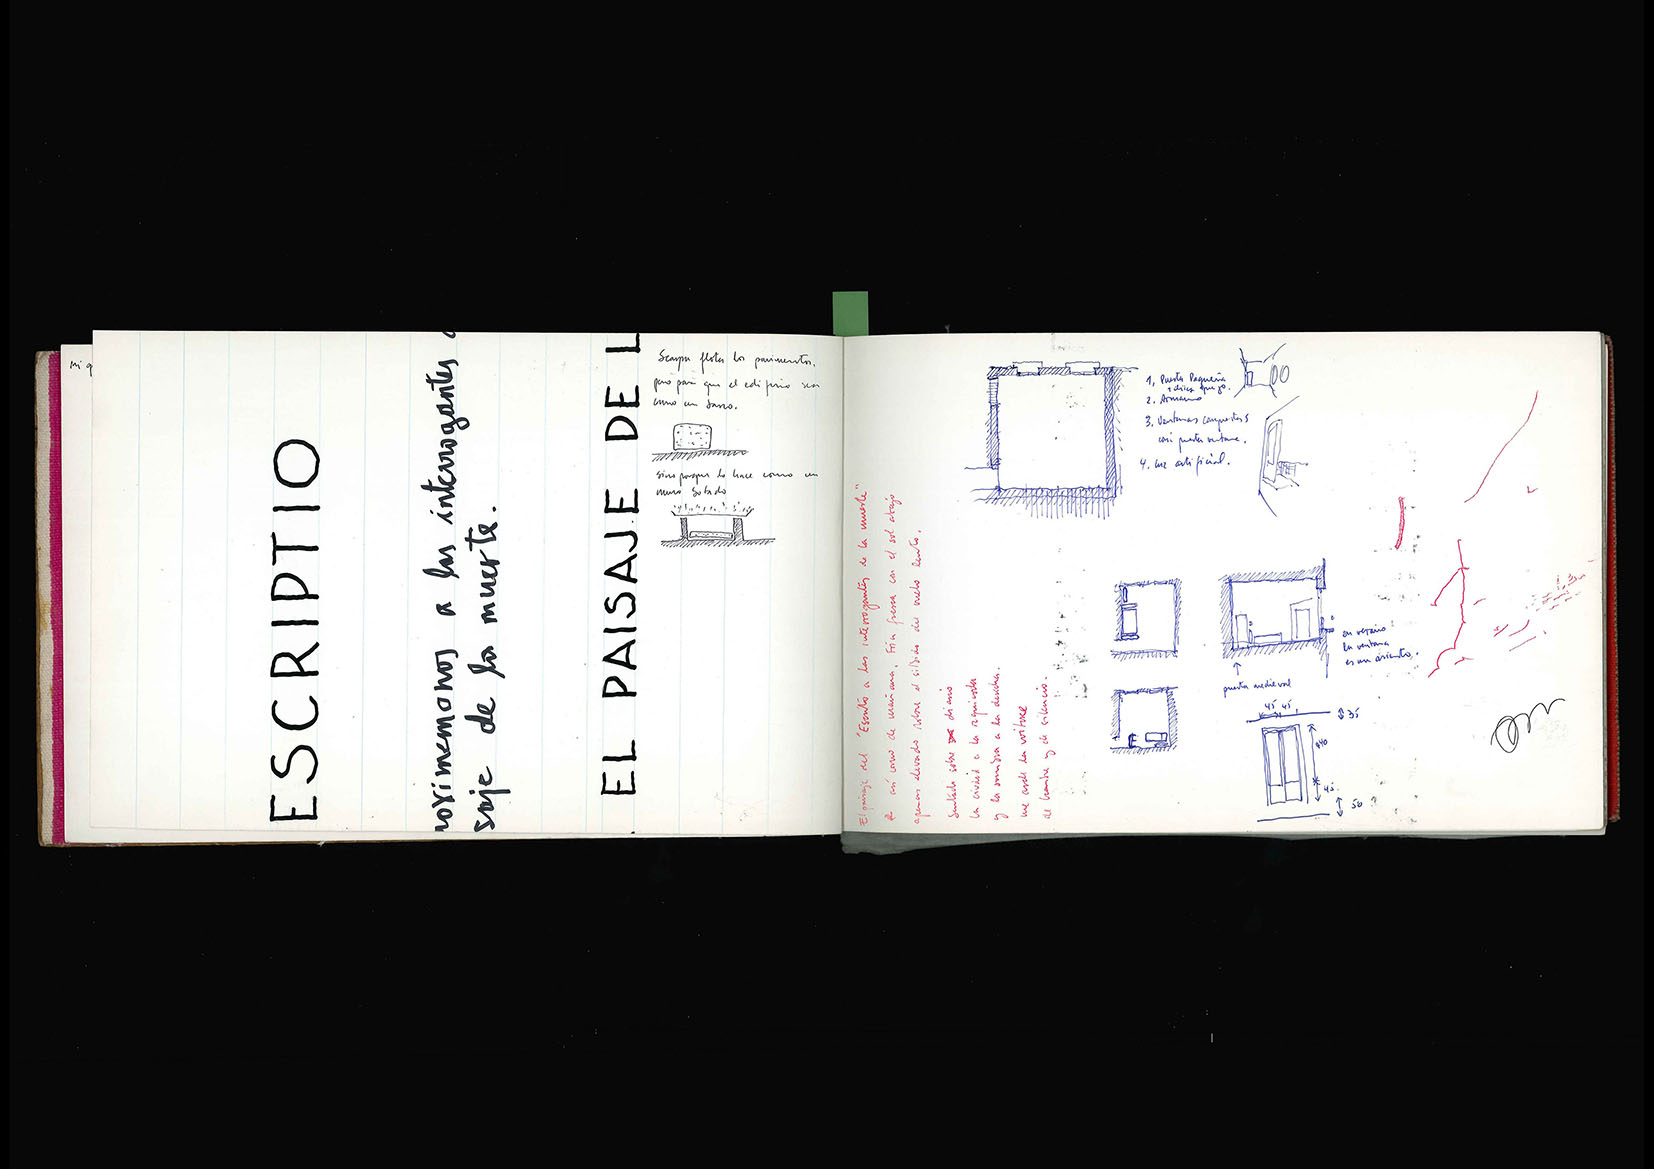 Mi q
ESCRIPTIO
roximemonos a las interrogantes
saje de la muerte.
EL PAISAJE DE L
Scarpa flota los pavimentos.
pero para que el edificio sea
como un vaso.
sino porque lo hace como un
muro
El paisaje del "Escrito a las interrogantes de la muerte"
así como de mañana. Fría fresca con el sol abajo
apenas elevado sobre el silbido de vuelo lento.
sentado sobre
la ciudad a la izquierda
y la sombra a la derecha.
me
de hambre y de silencio.
1, Puerta Pequeña
2. Armario
3. Ventanas compuestas
casi puerta ventana.
4. luz artificial.
en verano
la ventana
es un asiento.
puerta medieval
45 45
35
45
50